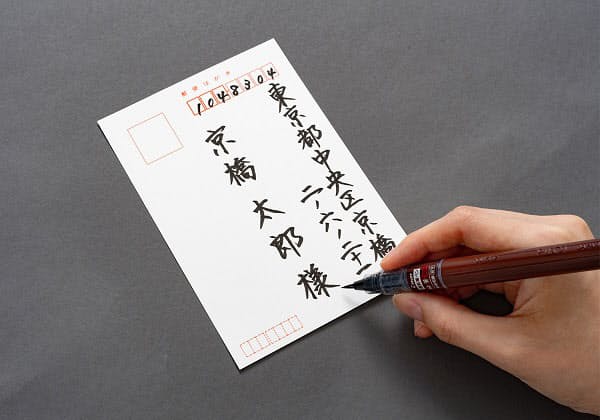 郵便はがき
1048304
東京都中央区京橋
二ノ六ノ二十一
京橋 太郎 様